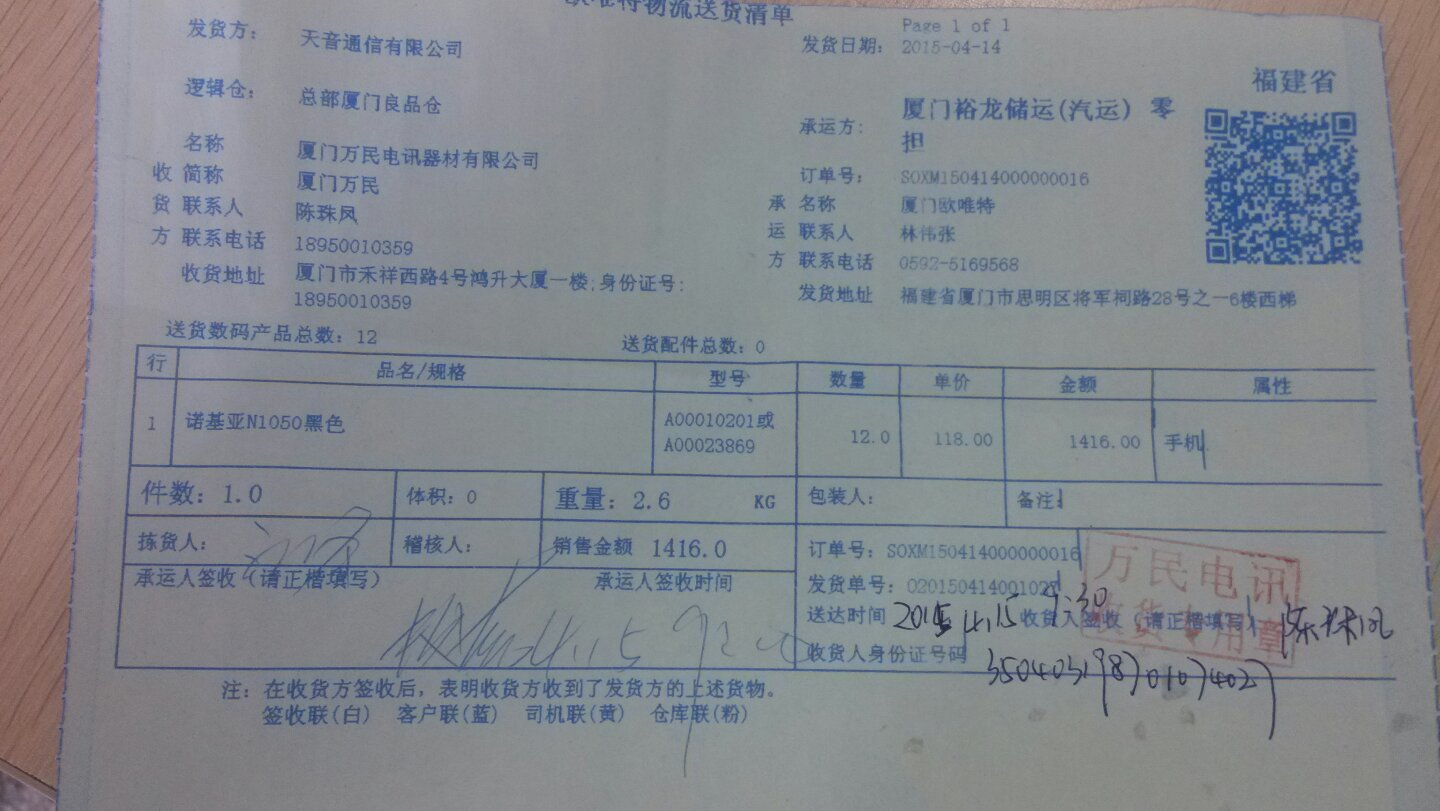 物流送货清单
Page 1 of 1
发货方： 天音通信有限公司 发货日期： 2015-04-14
福建省
逻辑仓： 总部厦门良品仓 承运方： 厦门裕龙储运(汽运) 零担
收货方
名称 厦门万民电讯器材有限公司
简称 厦门万民
联系人 陈珠凤
联系电话 18950010359
收货地址 厦门市禾祥西路4号鸿升大厦一楼;身份证号:
18950010359
订单号： SOXM150414000000016
承运方
名称 厦门欧唯特
联系人 林伟张
联系电话 0592-5169568
发货地址 福建省厦门市思明区将军祠路28号之一6楼西梯
送货数码产品总数：12 送货配件总数：0
行 品名/规格 型号 数量 单价 金额 属性
1 诺基亚N1050黑色 A00010201或A00023869 12.0 118.00 1416.00 手机
件数：1.0 体积：0 重量：2.6 KG 包装人： 备注：
拣货人： 稽核人： 销售金额 1416.0 订单号：SOXM150414000000016
承运人签收（请正楷填写） 承运人签收时间
发货单号：020150414001027
送达时间 2015 4.15 9:30 收货人签收（请正楷填写） 陈珠凤
收货人身份证号码 350403198701074027
万民电讯
收货专用章
注：在收货方签收后，表明收货方收到了发货方的上述货物。
签收联(白) 客户联(蓝) 司机联(黄) 仓库联(粉)